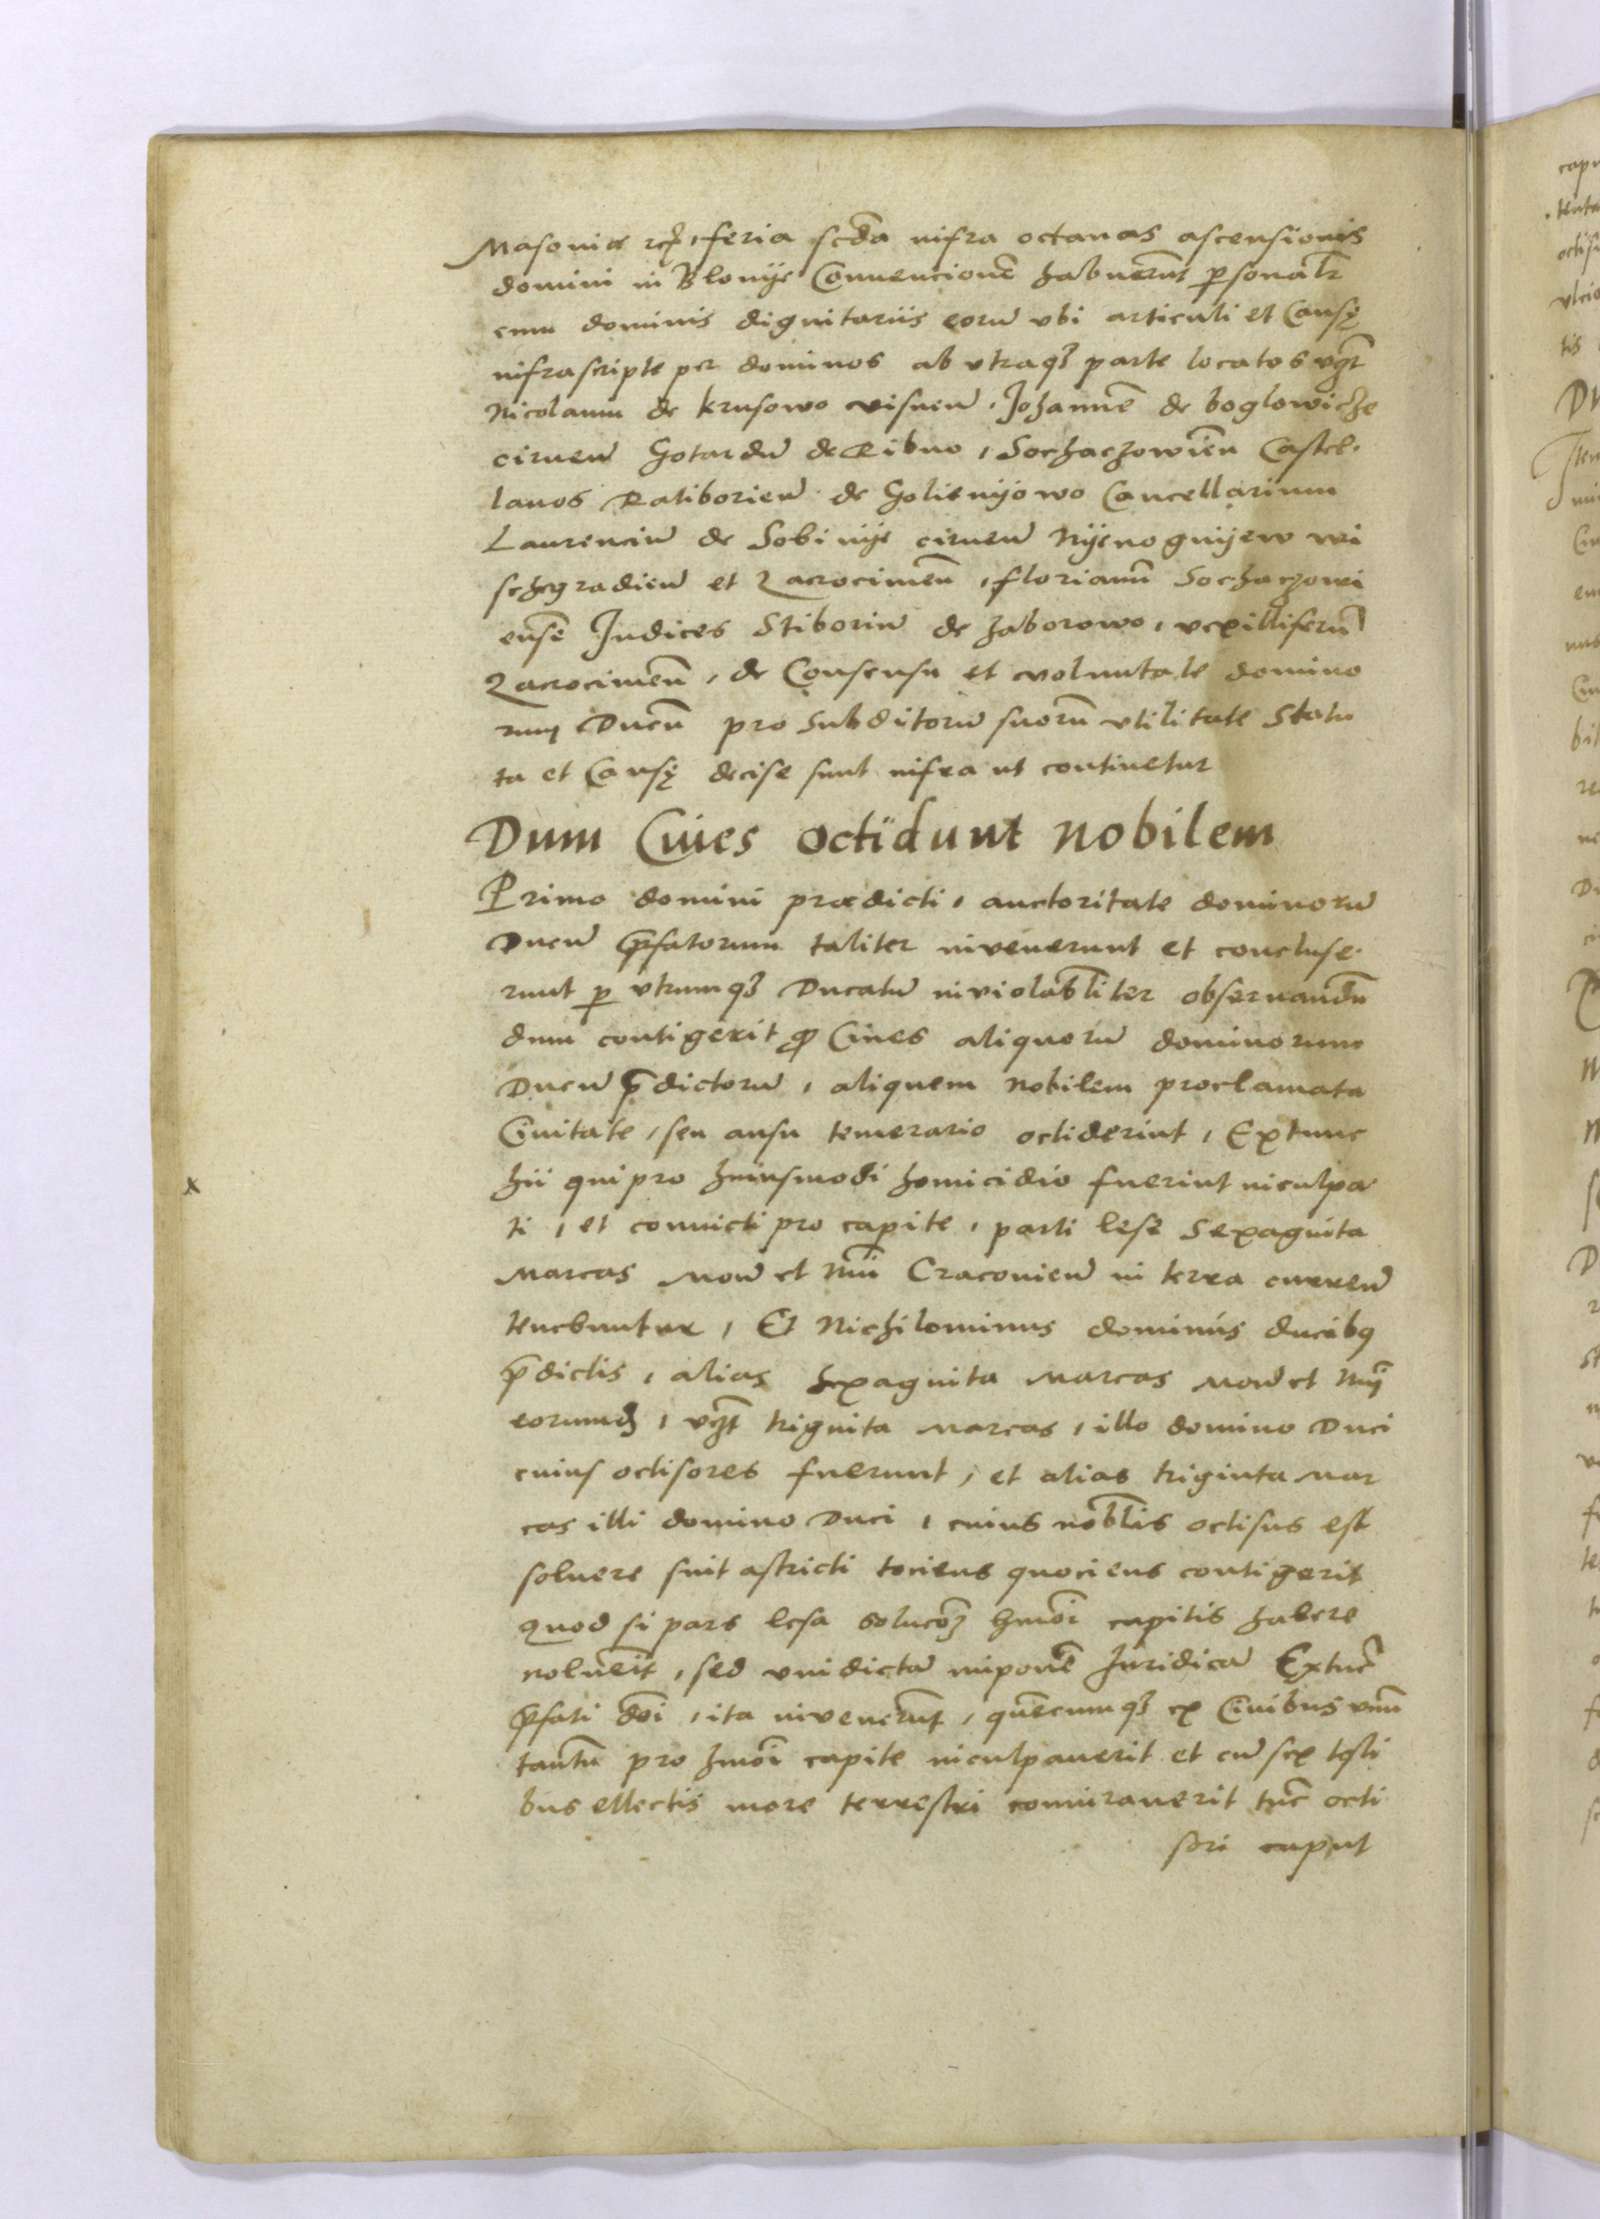 Masoniæ etc, feria scda infra octauas ascensionis
domini in Blonije Conuencione habuerut psonalr
cum dominis dignitariis eoru vbi articuli et Causę
infrascripte per dominos ab vtraq3 parte locatos vqt
Nicolaum de krusowo visnen, Johanne de boglowicze
cirnen Gotardu de Ribno, Sochaczowien Castel-
lanos Ratiborien de Golienijowo Cancellarium
Laurenciu de Sobinije cirnen Nijenognijew wi
schegradien et Zacrocimen, florianu Sochaczowi
ense Judices Stiboriu de zaborowo, vexilliferu
Zacrocimen, de Consensu et voluntate domino
rum Ducu pro Subditoru suoru vtilitate Statu
ta et Causę decise sunt infra ut continetur
Dum Ciues octidunt nobilem
Primo domini prædicti, auctoritate dominoru
Ducu pfatorum taliter inuenerunt et concluse-
runt p vtrumq3 Ducatu inuiolabliter obseruandu
dum contigerit q Ciues aliquoru dominorum
Ducu pdictoru, aliquem nobilem proclamata
Ciuitate, seu ausu temerario octiderint, Extunc
hii qui pro huiusmodi homicidio fuerint inculpa
ti, et conuicti pro capite, parti lese Sexaginta
Marcas mon et nui Cracouien in terra curren
tenebuntur, Et Nichilominus dominis ducibq
pdictis, alias sexaginta Marcas mon et nui
eorumd, vqt triginta marcas, illo domino Duci
cuius octisores fuerunt, et alias triginta mar
cas illi domino Duci, cuius noblis octisus est
soluere sint astricti tociens quociens contigerit
Quod si pars lesa solucoe3 hmoi capitis habere
noluerit, sed vindicta impone Juridica Extuc
pfati dni, ita inuenerut, quecumq3 ex Ciuibus vnu
tantu pro hmoi capite inculpauerit et cu sex testi
bus ellectis more terrestri coniurauerit tuc octi
sori caput
x